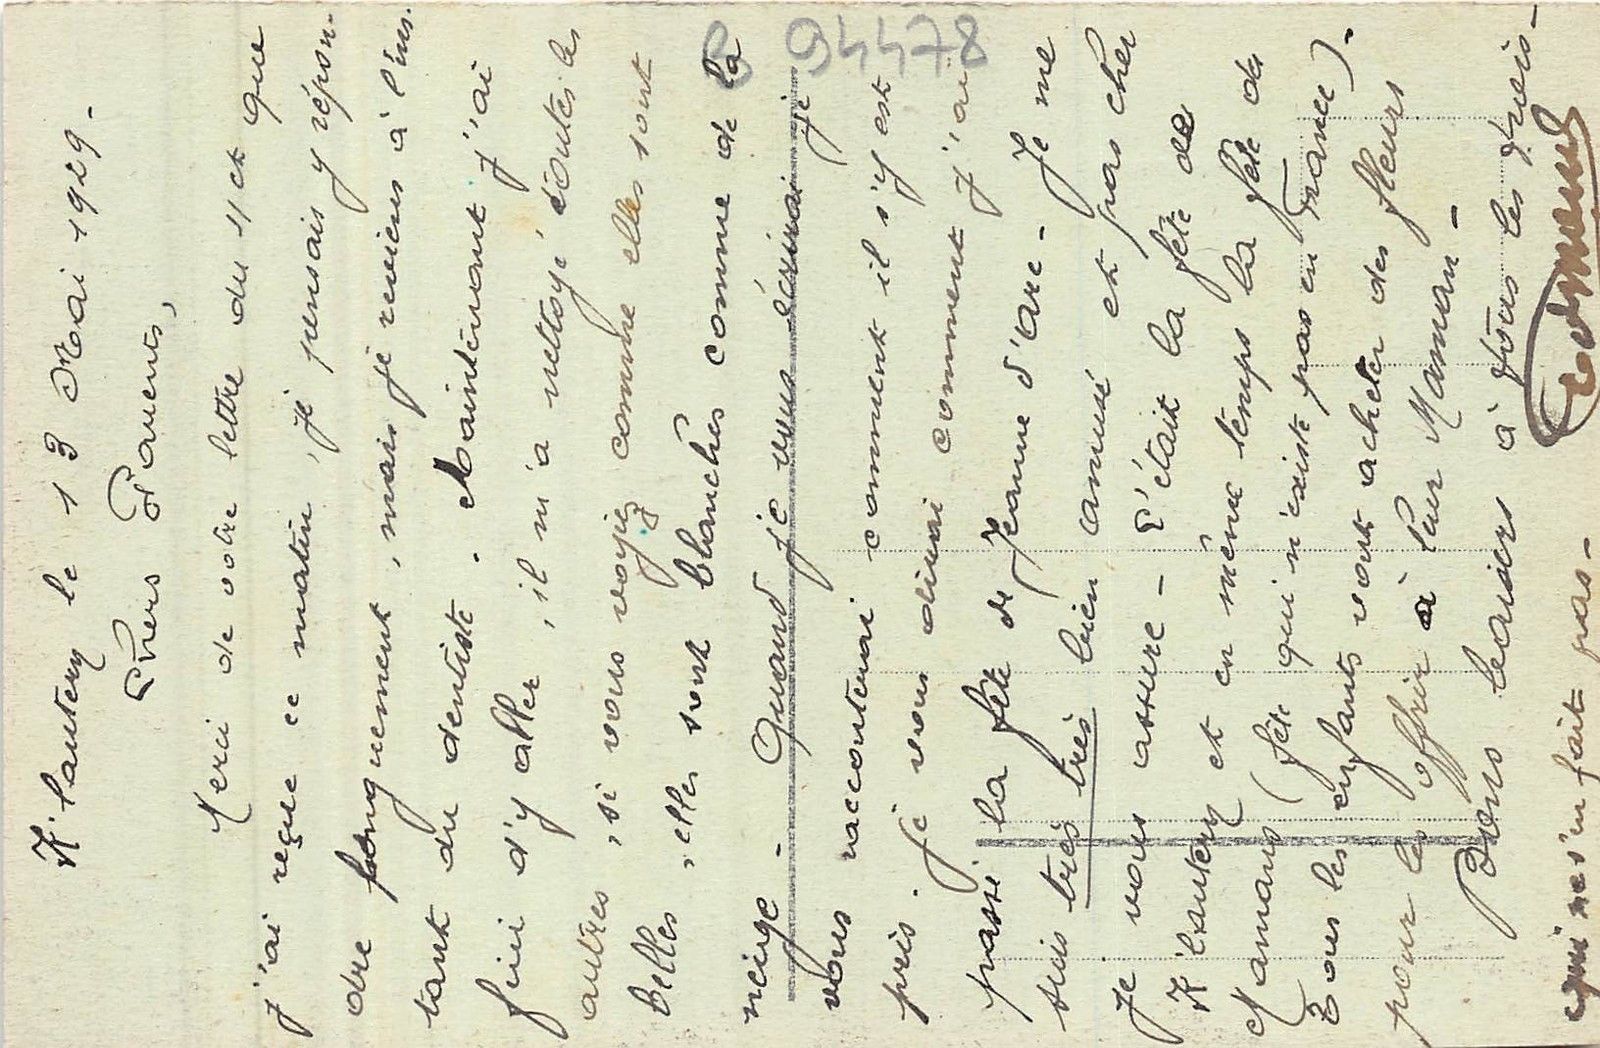 St Santery le 13 Mai 1929 -
Chers Parents,
Merci de votre lettre du 11 ct que
j'ai reçue ce matin, je pensais y répon-
dre longuement, mais je reviens à l'ins-
tant du dentiste. Maintenant j'ai
fini d'y aller, il m'a nettoyé toutes les
autres, si vous voyiez comme elles sont
belles, elles sont blanches comme de la
neige - Quand je vous écrirai je
vous raconterai comment il s'y est
pris. Je vous dirai comment j'ai
passé la fête de Jeanne d'Arc - Je me
suis très très bien amusé et pas cher
je vous assure - C'était la fête de
St et en même temps la fête des
Mamans (fête qui n'existe pas en France).
Tous les enfants vont acheter des fleurs
pour les offrir à leur Maman -
Bons baisers à tous les trois -
Edmond
qui ne s'en fait pas -
B 94478